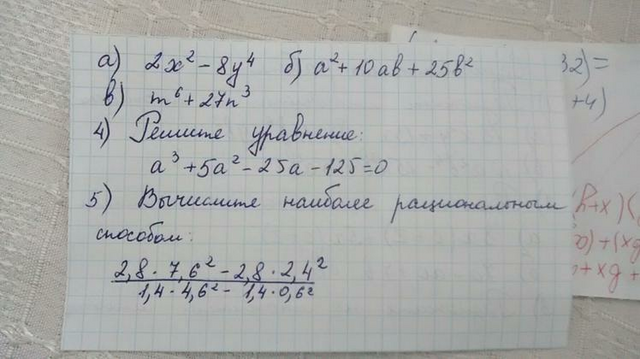 а) 2x² - 8y⁴ б) a² + 10ab + 25b²
в) m⁶ + 27n³
4) Решите уравнение:
a³ + 5a² - 25a - 125 = 0
5) Вычислите наиболее рациональным
способом:
2,8 · 7,6² - 2,8 · 2,4²
1,4 · 4,6² - 1,4 · 0,6²
32) =
+4)